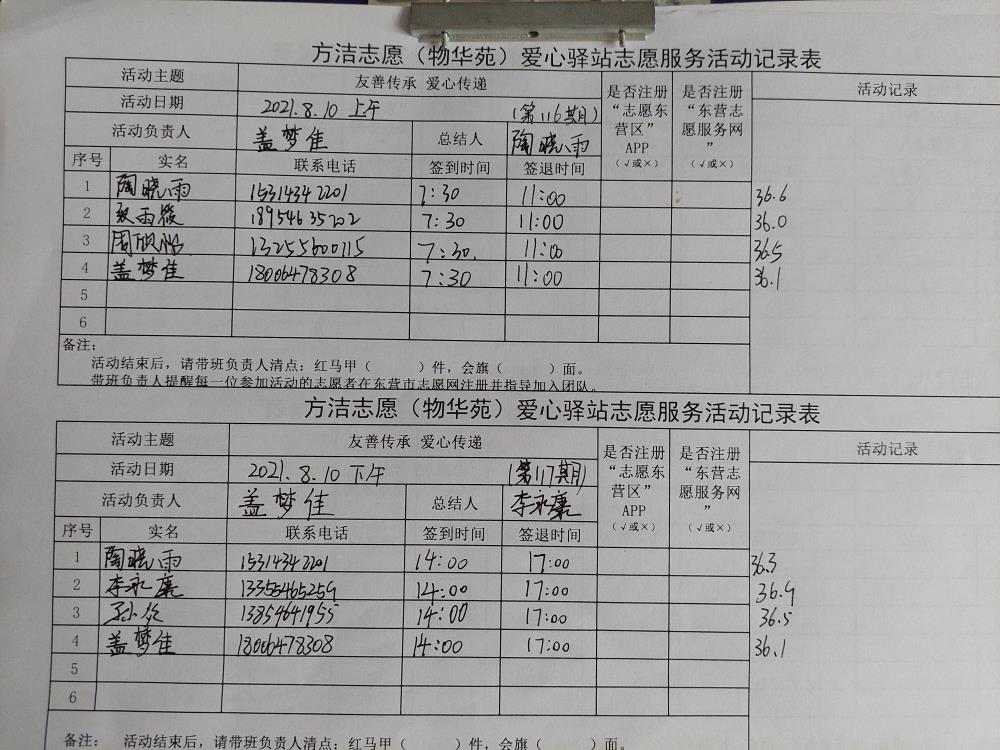 方洁志愿（物华苑）爱心驿站志愿服务活动记录表
活动主题 友善传承 爱心传递 是否注册“志愿东营区”APP（√或×） 是否注册“东营志愿服务网”（√或×） 活动记录
活动日期 2021.8.10 上午 （第116期）
活动负责人 盖梦佳 总结人 陶晓雨
序号 实名 联系电话 签到时间 签退时间
1 陶晓雨 15314342201 7:30 11:00 36.6
2 18954635202 7:30 11:00 36.0
3 13255600115 7:30. 11:00 36.5
4 盖梦佳 18006478308 7:30 11:00 36.1
5
6
备注：
活动结束后，请带班负责人清点：红马甲（ ）件，会旗（ ）面。
带班负责人提醒每一位参加活动的志愿者在东营市志愿网注册并指导加入团队。
方洁志愿（物华苑）爱心驿站志愿服务活动记录表
活动主题 友善传承 爱心传递 是否注册“志愿东营区”APP（√或×） 是否注册“东营志愿服务网”（√或×） 活动记录
活动日期 2021.8.10 下午 （第117期）
活动负责人 盖梦佳 总结人 李永廉
序号 实名 联系电话 签到时间 签退时间
1 陶晓雨 15314342201 14:00 17:00 36.3
2 李永廉 13355465259 14:00 17:00 36.9
3 13854641955 14:00 17:00 36.5
4 盖梦佳 18006478308 14:00 17:00 36.1
5
6
备注： 活动结束后，请带班负责人清点：红马甲（ ）件，会旗（ ）面。